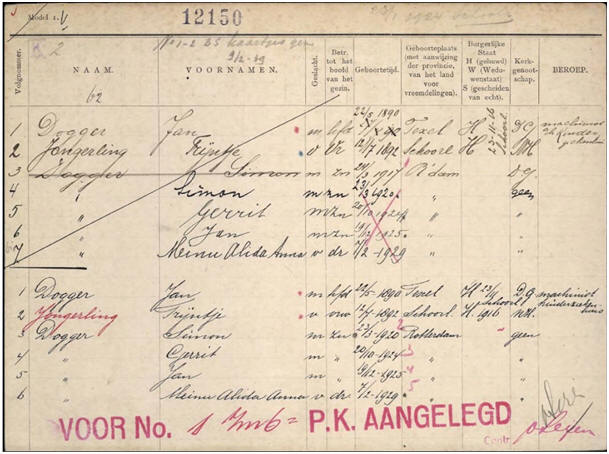 Model 1.
12150
No 1-2 BS kaartjes gez
9/12-39
Volgnummer.
NAAM.
VOORNAMEN.
Geslacht.
Betr. tot het hoofd van het gezin.
Geboortetijd.
Geboorteplaats (met aanwijzing der provincie, van het land voor vreemdelingen).
Burgerlijke Staat H (gehuwd) W (Weduwenstaat) S (gescheiden van echt).
Kerkgenootschap.
BEROEP.
62
1 Dogger Jan m hfd 22/5 1890 Texel H 23-11-16 Schoorl D.G. machinist
2 Jongerling Trijntje v vr 12/7 1892 Schoorl H NH
3 Dogger Simon m zn 1917 R'dam D.G.
4 " Simon m zn 23/3 1920 " geen
5 " Gerrit m zn 20/10 1924 "
6 " Jan m zn 19/12 1925 "
7 " Meinu Alida Anna v dr 7/12-1929 "
1 Dogger Jan m hfd 22/5-1890 Texel H 23/11 D.G. machinist
2 Jongerling Trijntje v vrw 12/7-1892 Schoorl H 1916 Schoorl N.H. kinderziekenhuis
3 Dogger Simon m zn 23/3-1920 Rotterdam " geen
4 " Gerrit m " 20/10-1924 " "
5 " Jan m " 19/12-1925 " "
6 " Meinu Alida Anna v dr 7/12-1929 " "
VOOR No. 1 t/m 6 = P.K. AANGELEGD
Centr.